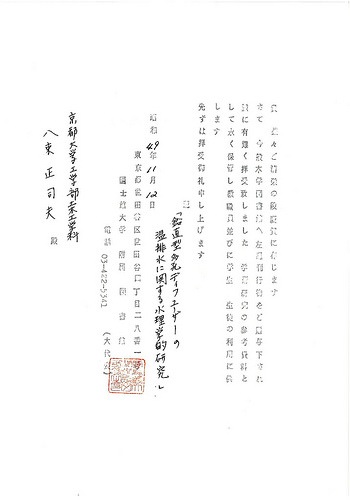 益々ご清栄の段慶賀に存じます
さて 今般本学図書館へ左記刊行物をご寄与下され
誠に有難く拝受致しました 学術研究の参考資料と
して永く保管し教職員並びに学生 生徒の利用に供
します
先ずは拝受御礼申し上げます
記
「鉛直型多孔ディフューザーの
温排水に関する水理学的研究」
昭和49年11月12日
東京都世田谷区世田谷四丁目二八番一号
国士舘大学 附属図書館
電話 03-422-5341 (大代表)
京都大学工学部土木工学科
八束正司夫 殿